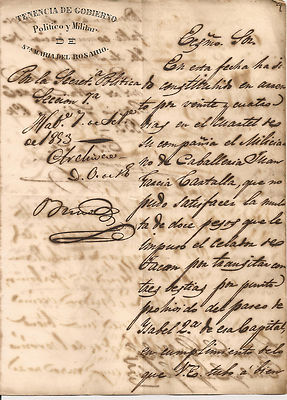 TENENCIA DE GOBIERNO
Político y Militar
DE
Sta. MARIA DEL ROSARIO.
Pr la Secreta. Política
Seccion 1a
Haba. 7 de
de 1853
Archivese
D. O. de
Exsmo. Sor.
En esta fecha ha si
do constituido en arres
to por veinte y cuatro
oras en el Cuartel de
su compañia el Milicia
no de Caballeria Juan
Garcia Castalla, que no
pudo satisfacer la mul
ta de doce pesos que le
impuso el Celador de
Tacon por transitar con
tres bestias por punto
prohivido del paseo de
Ysabel 2a. de esa Capital,
en cumplimiento de lo
que V.E. tubo a bien